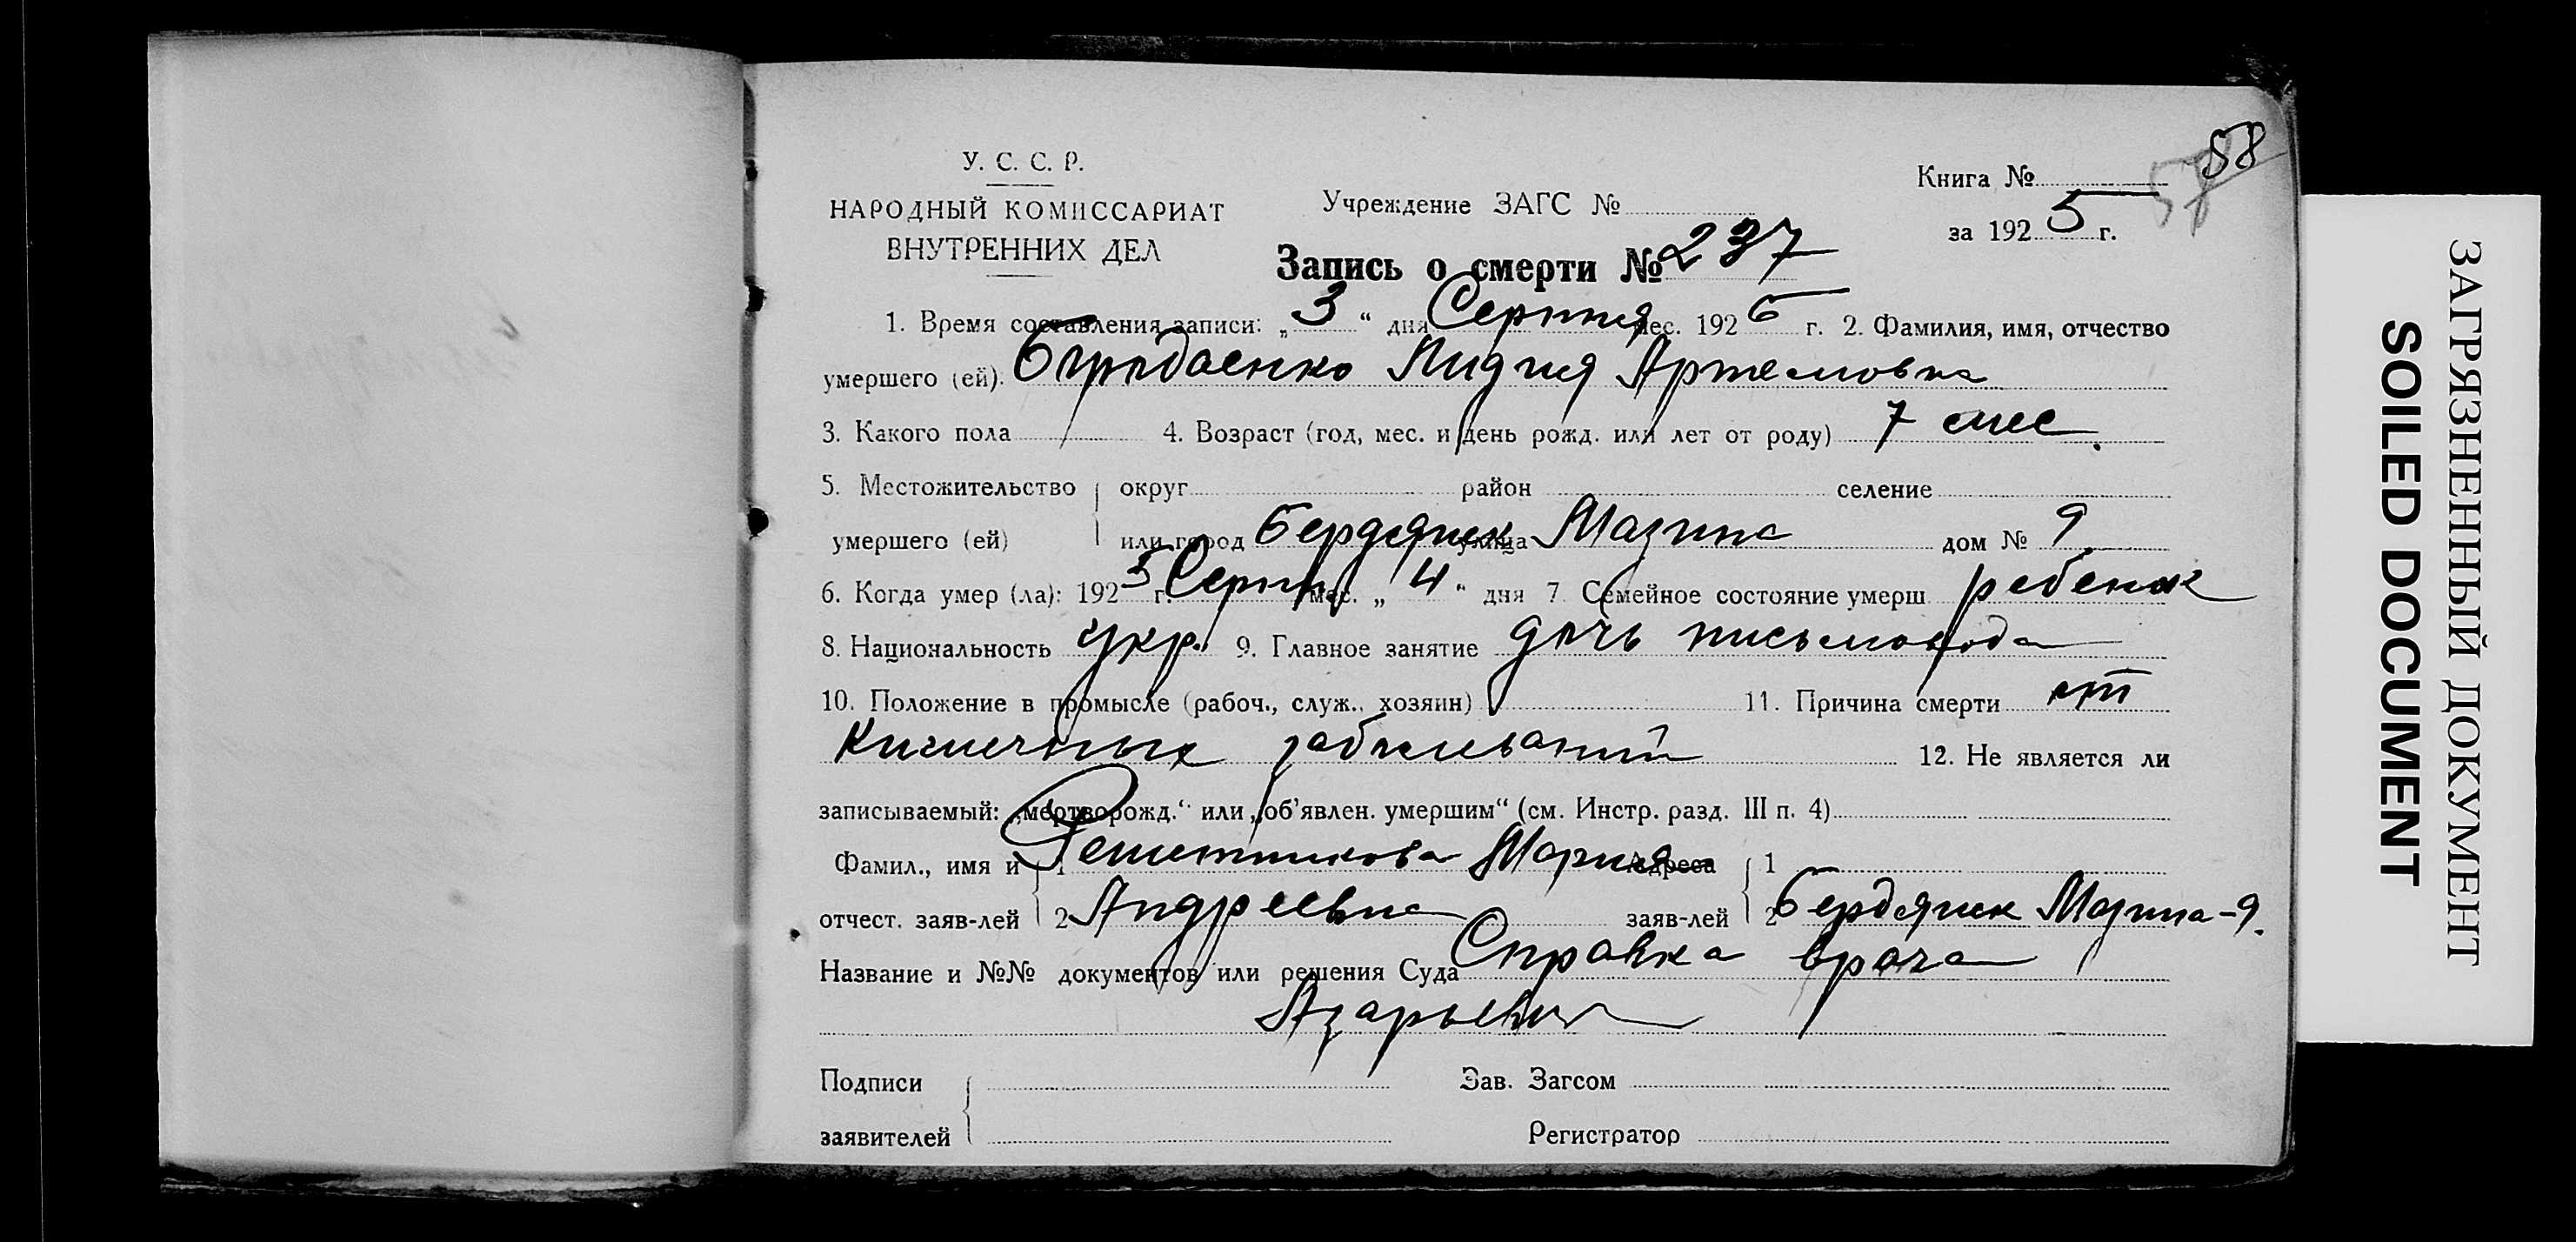 58
57
У. С. С. Р.
НАРОДНЫЙ КОМИССАРИАТ
ВНУТРЕННИХ ДЕЛ
Учреждение ЗАГС №
Книга №
за 1925 г.
Запись о смерти № 237
1. Время составления записи: „3“ дня Серпня мес. 1925 г. 2. Фамилия, имя, отчество
умершего (ей). Лидия Артемовна
3. Какого пола 4. Возраст (год, мес. и день рожд. или лет от роду) 7 мес.
5. Местожительство округ район селение
умершего (ей) или город Бердянск улица Мазина дом № 9
6. Когда умер (ла): 1925 г. Серпня мес. „4“ дня 7 Семейное состояние умерш. ребенок
8. Национальность укр. 9. Главное занятие дочь письмовода
10. Положение в промысле (рабоч., служ., хозяин) 11. Причина смерти от
кишечных заболеваний 12. Не является ли
записываемый: „мертворожд.“ или „об'явлен. умершим“ (см. Инстр. разд. III п. 4)
Фамил., имя и 1 Решетникова Мария Адреса 1
отчест. заяв-лей 2 Андреевна заяв-лей 2 Бердянск Мазина-9.
Название и №№ документов или решения Суда Справка врача
Азарьевич
Подписи Зав. Загсом
заявителей Регистратор
ЗАГРЯЗНЕННЫЙ ДОКУМЕНТ
SOILED DOCUMENT